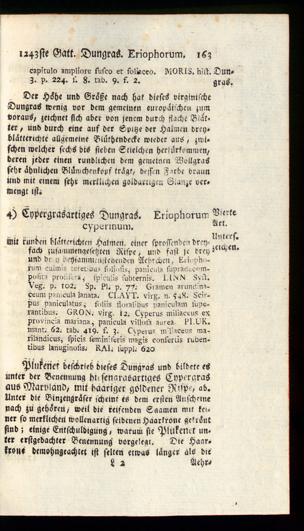 1243ste Gatt. Dungras. Eriophorum. 163
capitulo ampliore fusco et foliaceo. MORIS. hist. Dun-
3. p. 224. s. 8. tab. 9. f. 2. gras.
Der Höhe und Größe nach hat dieses virginische
Dungras wenig vor dem gemeinen europäischen zum
voraus, zeichnet sich aber von jenem durch flache Blät-
ter, und durch eine auf der Spitze der Halmen drey-
blätterichte allgemeine Blüthendecke wieder aus, zwi-
schen welcher sechs bis sieben Stielchen hervorkommen,
deren jeder einen rundlichen dem gemeinen Wollgras
sehr ähnlichen Blümchenkopf trägt, dessen Farbe braun
und mit einem sehr merklichen goldartigen Glanze ver-
mengt ist.
4) Cypergrasartiges Dungras. Eriophorum Vierte
cyperinum. Art.
mit runden blätterichten Halmen, einer sprossenden drey- Unters.
fach zusammengesetzten Rispe, und fast je drey zeichen.
und drey beysammenstehenden Aehrchen, Eriopho-
rum culmis teretibus foliosis, panicula supradecom-
posita prolifera, spiculis subternis. LINN. Syst.
Veg. p. 102. Sp. Pl. p. 77. Gramen arundina-
ceum panicula lanata. CLAYT. virg. n. 548. Scir-
pus paniculatus; foliis floralibus paniculam supe-
rantibus. GRON. virg. 12. Cyperus miliaceus ex
provincia mariana, panicula villosa aurea. PLUK.
mant. 62. tab. 419. f. 3. Cyperus miliaceus ma-
rilandicus, spicis seminiferis magis confertis ruben-
tibus lanuginosis. RAI. suppl. 620
Plukenet beschrieb dieses Dungras und bildete es
unter der Benennung hirsengrasartiges Cypergras
aus Maryland, mit haariger goldener Rispe, ab.
Unter die Binzengräser scheint es dem ersten Ansehen
nach zu gehören; weil die reifenden Saamen mit kei-
ner so merklichen wollenartig seidenen Haarkrone gekrönt
sind; einige Entschuldigung, warum sie Plukenet un-
ter erstgedachter Benennung vorgelegt. Die Haar-
krone demohngeachtet ist selten etwas länger als die
L 2 Aehr-